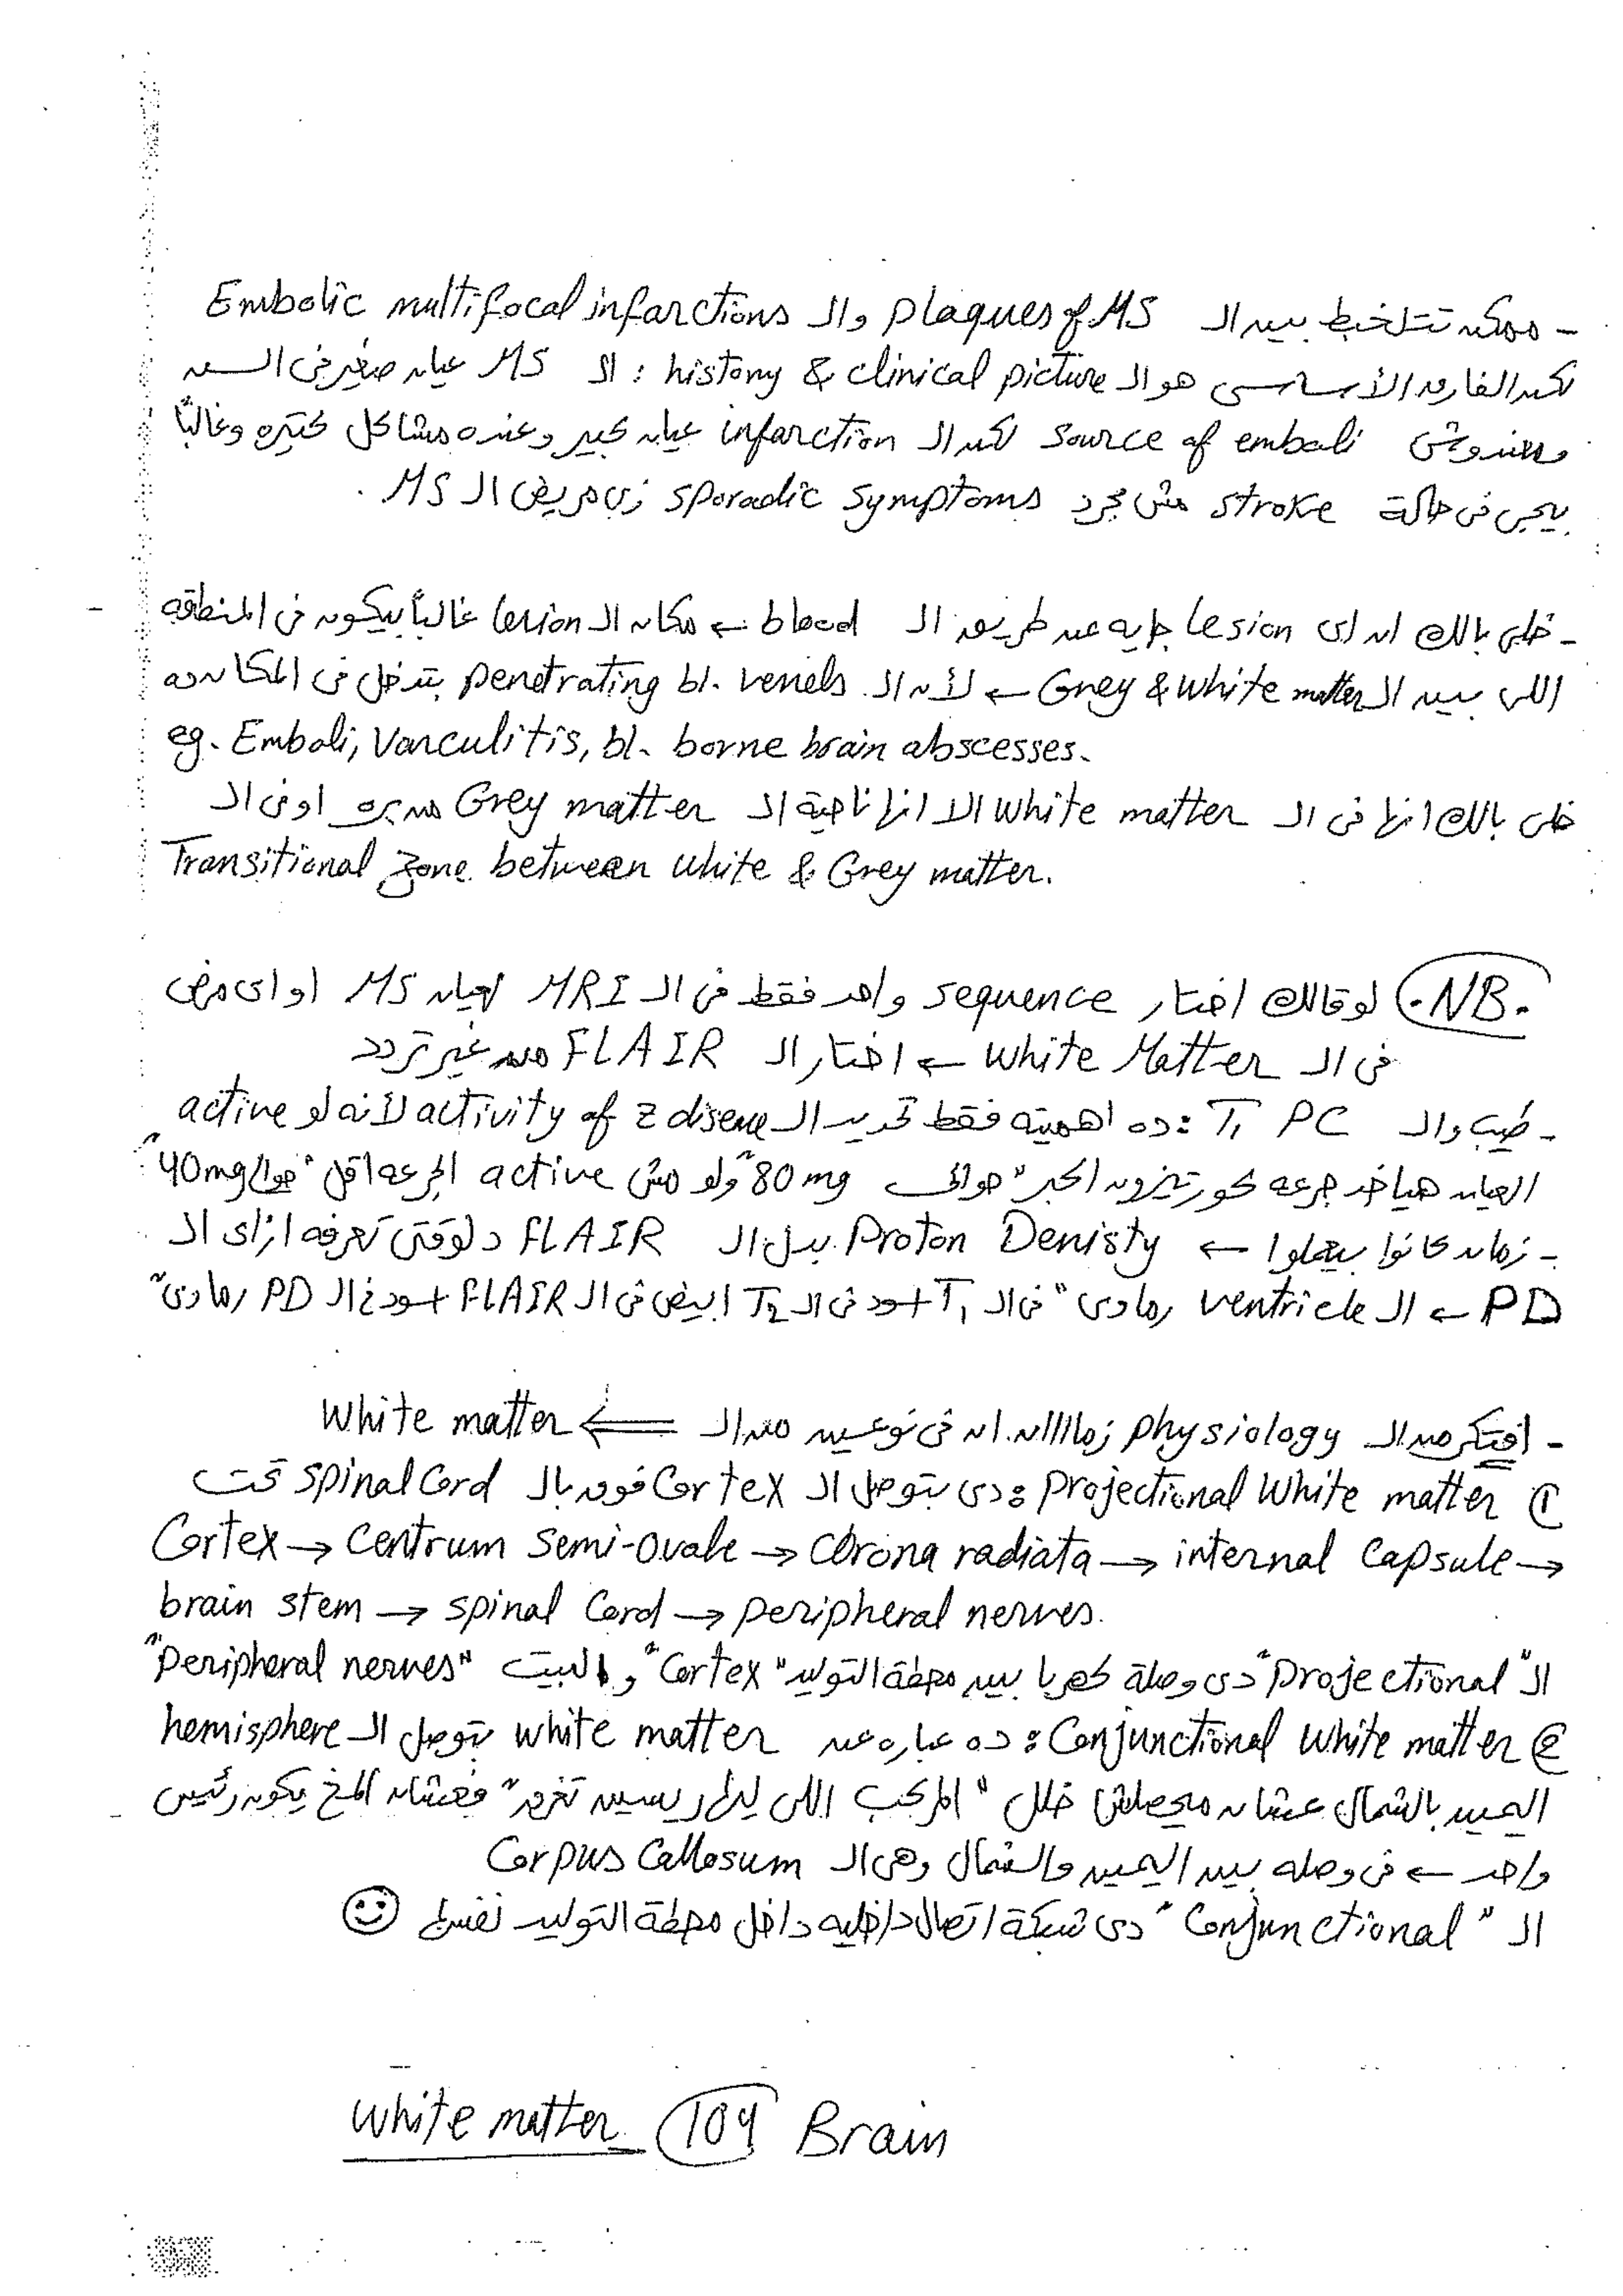 - ممكن تتلخبط بين الـ plaques of MS والـ Embolic multifocal infarctions
لكن الفارق الأساسى هو الـ history & clinical picture : الـ MS عيان صغير فى السن
ومعندوش source of emboli لكن الـ infarction عيان كبير وعنده مشاكل كتيره وغالباً
يجى فى حالة stroke مش مجرد sporadic symptoms زى مريض الـ MS .
- خلى بالك ان اى lesion جايه عن طريق الـ blood ← مكان الـ lesion غالباً بيكون فى المنطقه
اللى بين الـ Grey & White matter ← لأن الـ penetrating bl. vessels بتدخل فى المكان ده
eg. Emboli, Vasculitis, bl. borne brain abscesses.
خلى بالك انها فى الـ white matter الا انها ناحية الـ Grey matter من بره او فى الـ
Transitional zone between white & Grey matter.
NB. لو قالك اختار sequence واحد فقط فى الـ MRI لعيان MS او اى مرض
فى الـ White Matter ← اختار الـ FLAIR من غير تردد
- طيب والـ T1 PC : ده اهميته فقط تحديد الـ activity of z disease لأنه لو active
العيان هياخد جرعه كورتيزون اكبر "حوالى 80 mg" ولو مش active الجرعه اقل "حوالى 40mg"
- زمان كانوا بيعملوا ← Proton Denisty بدل الـ FLAIR دلوقتى تعرفه ازاى الـ
PD ← الـ ventricle رمادى "فى الـ T1 اسود فى الـ T2 ابيض فى الـ FLAIR اسود فى الـ PD رمادى"
- افتكر من الـ physiology زماااان ان فى نوعين من الـ ⇐ White matter
① Projectional White matter : دى بتوصل الـ Cortex فوق بالـ spinal Cord تحت
Cortex → Centrum Semi-ovale → Corona radiata → internal Capsule →
brain stem → spinal Cord → peripheral nerves.
الـ "Projectional" دى وصلة كهربا بين محطة التوليد "Cortex" والبيت "Peripheral nerves"
② Conjunctional White matter : ده عباره عن white matter بتوصل الـ hemisphere
اليمين بالشمال عشان ميحصلش خلل "المركب اللى ليها ريسين تغرق" فعشان المخ يكون رئيس
واحد ← فى وصله بين اليمين والشمال وهى الـ Corpus Callosum
الـ "Conjunctional" دى شبكة اتصال داخليه داخل محطة التوليد نفسها ☺
White matter 104 Brain